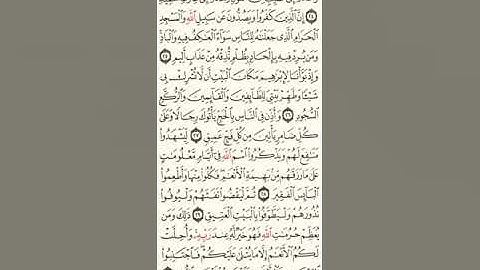 إِنَّ الَّذِينَ كَفَرُوا وَيَصُدُّونَ عَن سَبِيلِ اللَّهِ وَالْمَسْجِدِ
الْحَرَامِ الَّذِي جَعَلْنَاهُ لِلنَّاسِ سَوَاءً الْعَاكِفُ فِيهِ وَالْبَادِ
وَمَن يُرِدْ فِيهِ بِإِلْحَادٍ بِظُلْمٍ نُّذِقْهُ مِنْ عَذَابٍ أَلِيمٍ ٢٥
وَإِذْ بَوَّأْنَا لِإِبْرَاهِيمَ مَكَانَ الْبَيْتِ أَن لَّا تُشْرِكْ بِي
شَيْئًا وَطَهِّرْ بَيْتِيَ لِلطَّائِفِينَ وَالْقَائِمِينَ وَالرُّكَّعِ
السُّجُودِ ٢٦ وَأَذِّن فِي النَّاسِ بِالْحَجِّ يَأْتُوكَ رِجَالًا وَعَلَىٰ
كُلِّ ضَامِرٍ يَأْتِينَ مِن كُلِّ فَجٍّ عَمِيقٍ ٢٧ لِّيَشْهَدُوا
مَنَافِعَ لَهُمْ وَيَذْكُرُوا اسْمَ اللَّهِ فِي أَيَّامٍ مَّعْلُومَاتٍ
عَلَىٰ مَا رَزَقَهُم مِّن بَهِيمَةِ الْأَنْعَامِ فَكُلُوا مِنْهَا وَأَطْعِمُوا
الْبَائِسَ الْفَقِيرَ ٢٨ ثُمَّ لْيَقْضُوا تَفَثَهُمْ وَلْيُوفُوا
نُذُورَهُمْ وَلْيَطَّوَّفُوا بِالْبَيْتِ الْعَتِيقِ ٢٩ ذَٰلِكَ وَمَن
يُعَظِّمْ حُرُمَاتِ اللَّهِ فَهُوَ خَيْرٌ لَّهُ عِندَ رَبِّهِ وَأُحِلَّتْ
لَكُمُ الْأَنْعَامُ إِلَّا مَا يُتْلَىٰ عَلَيْكُمْ فَاجْتَنِبُوا